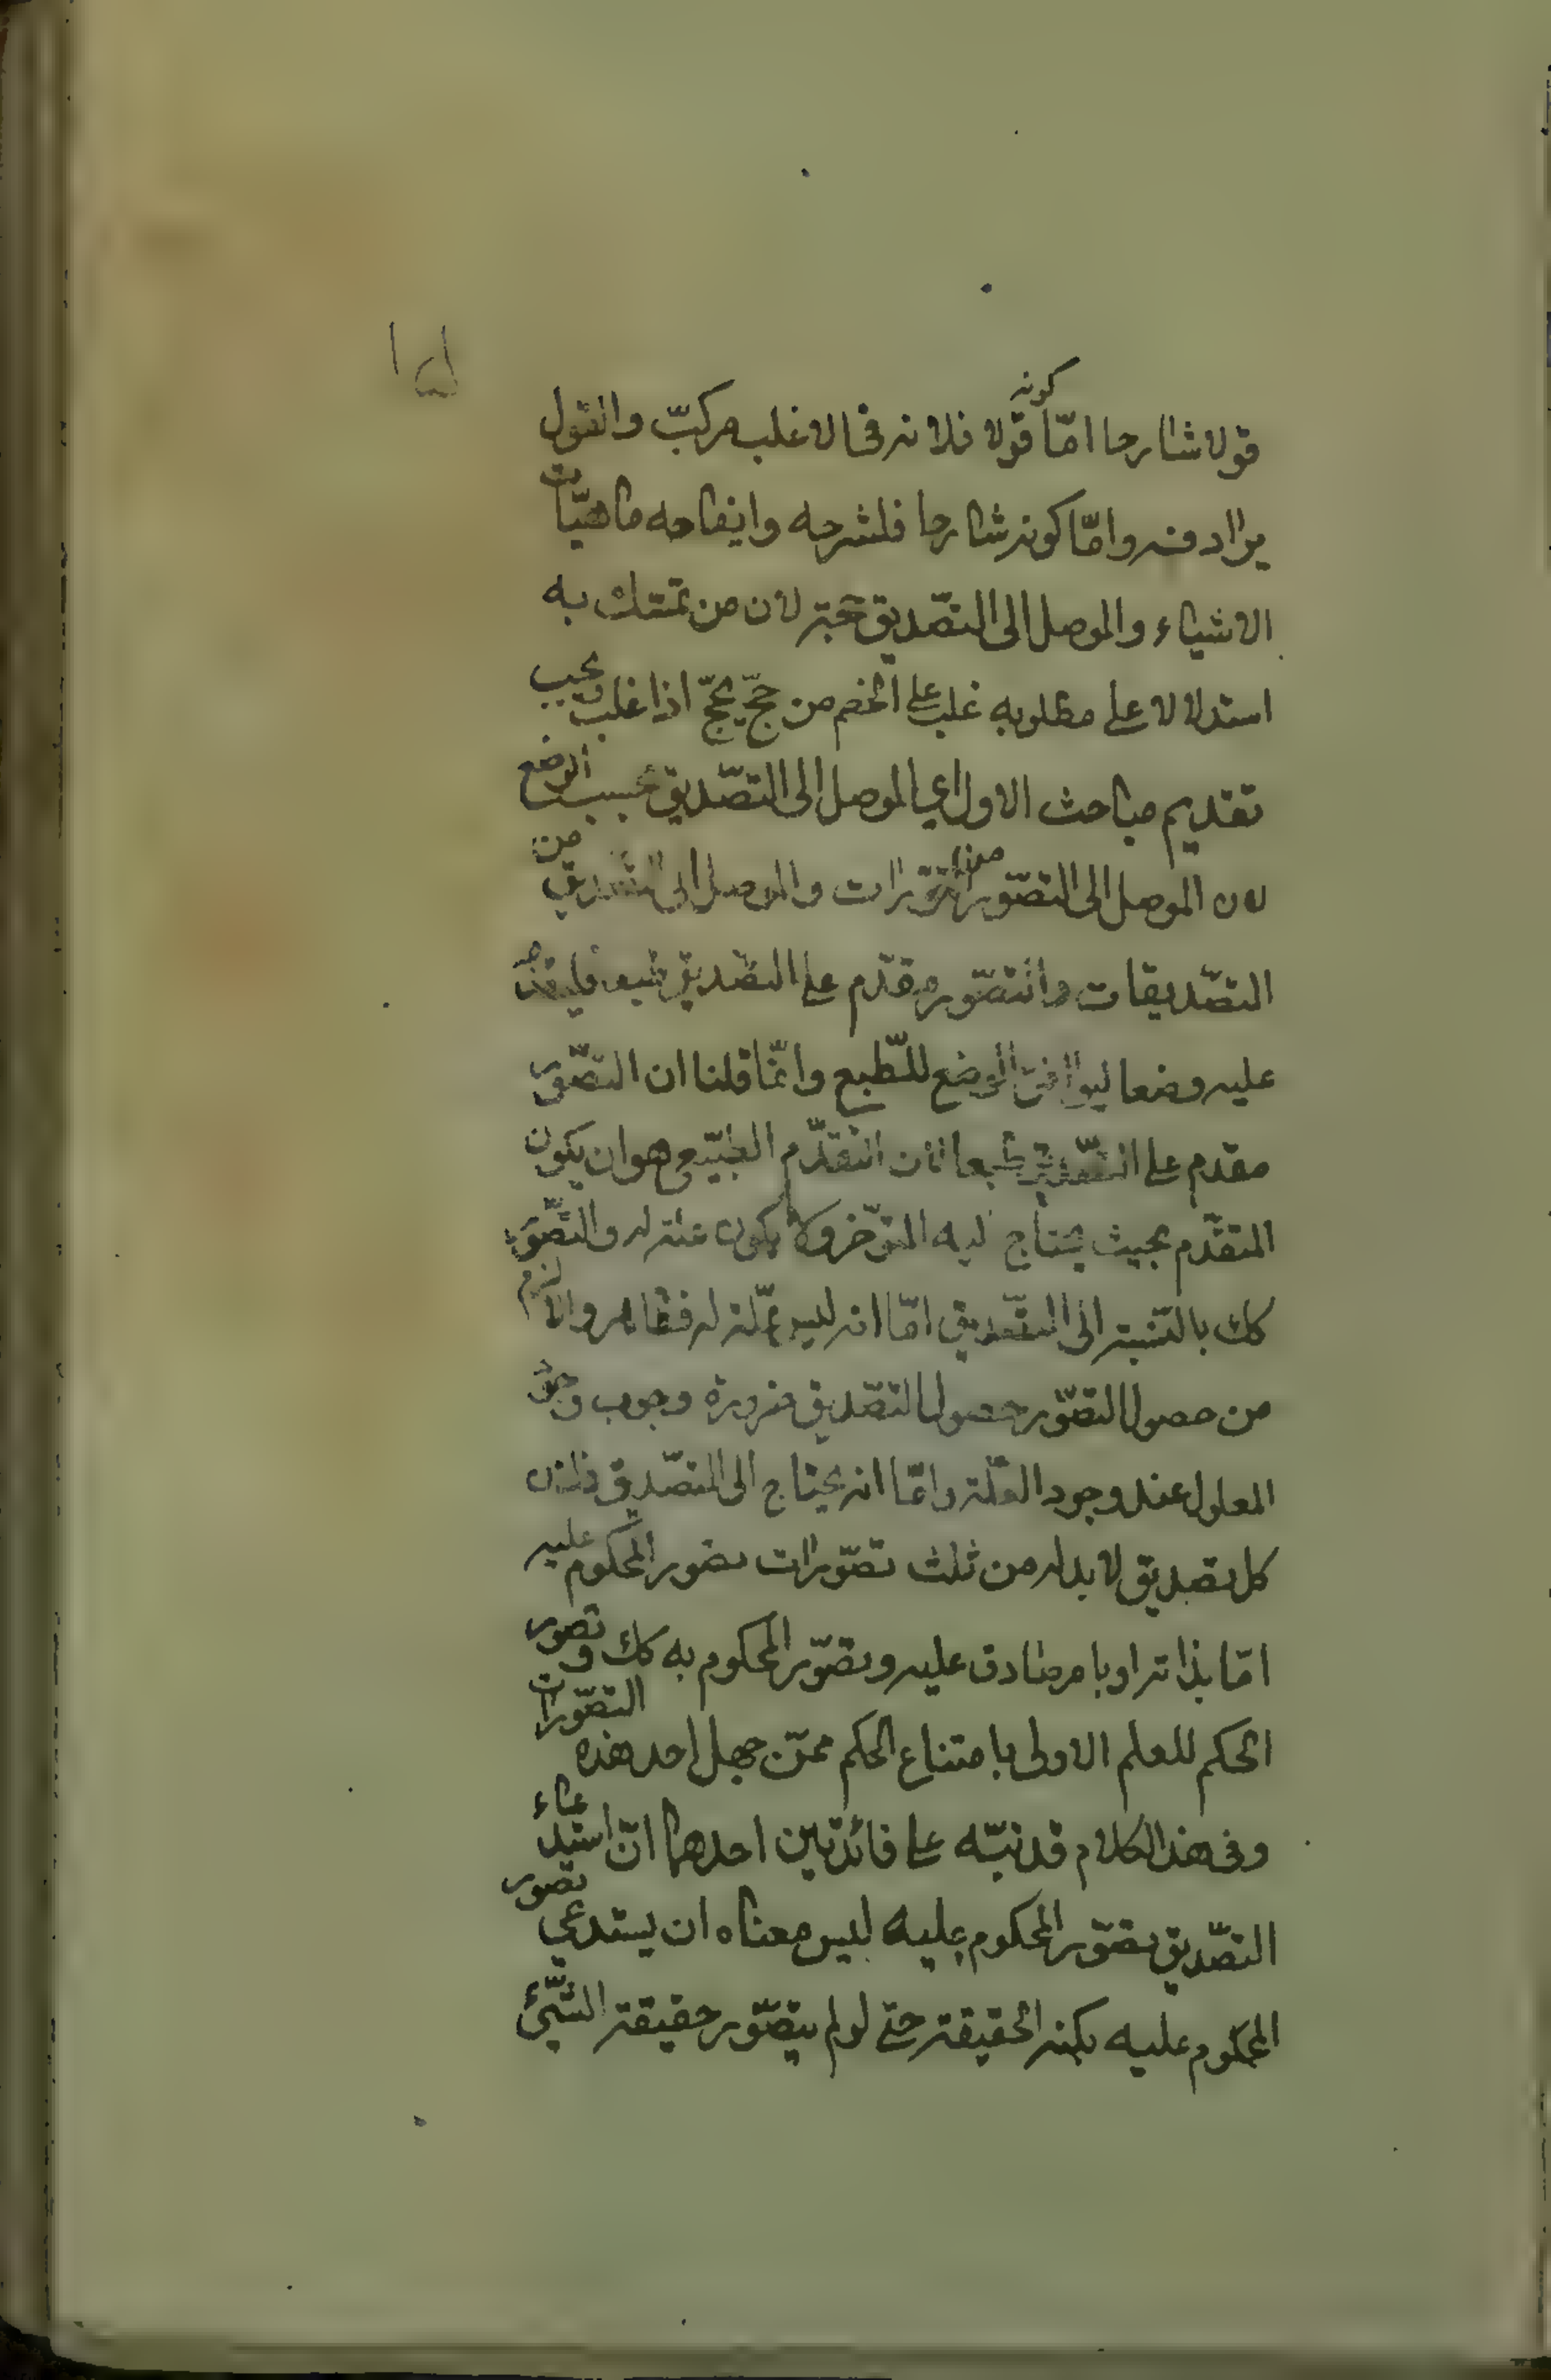 ١٥
قولا شارحا امّا كونه قولا فلانه فى الاغلب مركبّ والقول
يرادفه وامّا كونه شارحا فلشرحه وايضاحه ماهيّات
الاشياء والموصل الى التصّديق حجّة لان من تمسّك به
استدلالا على مطلوبه غلب على الخصم من حجّ يحجّ اذا غلب ويجب
تقديم مباحث الاول اي الموصل الى التصّديق بحسب الوضع
لان الموصل الى التصّور من التصّورات والموصل الى التصديق من
التصّديقات والتصّور مقدّم على التصّديق طبعا فليقدّم
عليه وضعا ليوافق الوضع للطّبع وانّما قلنا ان التصّور
مقدم على التصّديق طبعا لان التقدّم الطبيّعى هو ان يكون
المتقدّم بحيث يحتاج اليه المتوخّر ولا يكون علته له والتصّور
كك بالنّسبة الى التصّديق امّا انه ليس علّة له فظاهر والا لزم
من حصول التصّور حصول التصّديق ضرورة وجوب وجود
المعلول عند وجود العلّة وامّا انه يحتاج الى المتصّديق فلان
كل تصديق لا بد له من ثلث تصّورات تصور المحكوم عليه
امّا بذاته او بامر صادق عليه وتصّور المحكوم به كك وتصور
الحكم للعلم الاولى بامتناع الحكم ممّن جهل احد هذه التصّورات
وفى هذا الكلام قد نبّه على فائدتين احدهما انّ استدعاء
التصّديق تصّور المحكوم عليه ليس معناه ان يستدعي تصور
المحكوم عليه بكنه الحقيقة حتى لو لم يتصّور حقيقة الشّئ